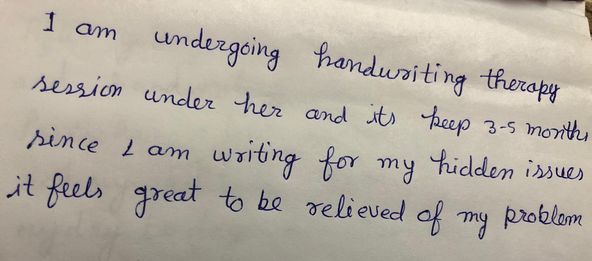 I am undergoing handwriting therapy
session under her and its keep 3-5 months
since I am writing for my hidden issues
it feels great to be relieved of my problem